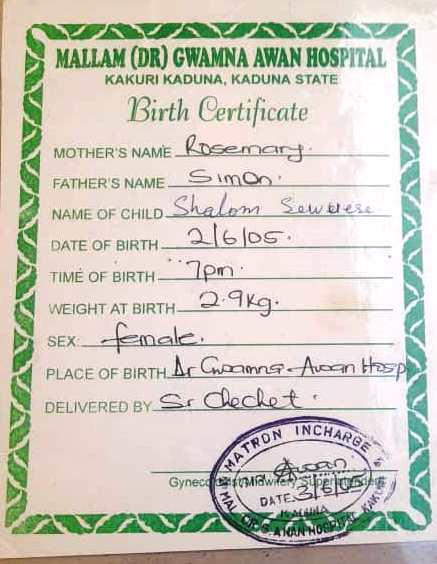 MALLAM (DR) GWAMNA AWAN HOSPITAL
KAKURI KADUNA, KADUNA STATE
Birth Certificate
MOTHER'S NAME Rosemary.
FATHER'S NAME Simon.
NAME OF CHILD Shalom Sewuese
DATE OF BIRTH 2/6/05.
TIME OF BIRTH 7pm.
WEIGHT AT BIRTH 2.9kg.
SEX: female.
PLACE OF BIRTH Dr Gwamna-Awan Hosp
DELIVERED BY Sr Chechet.
MATRON INCHARGE
Awan
Midwifery Superintendent
DATE 3/6/05
KADUNA
MAL. DR. G. AWAN HOSPITAL KAKURI